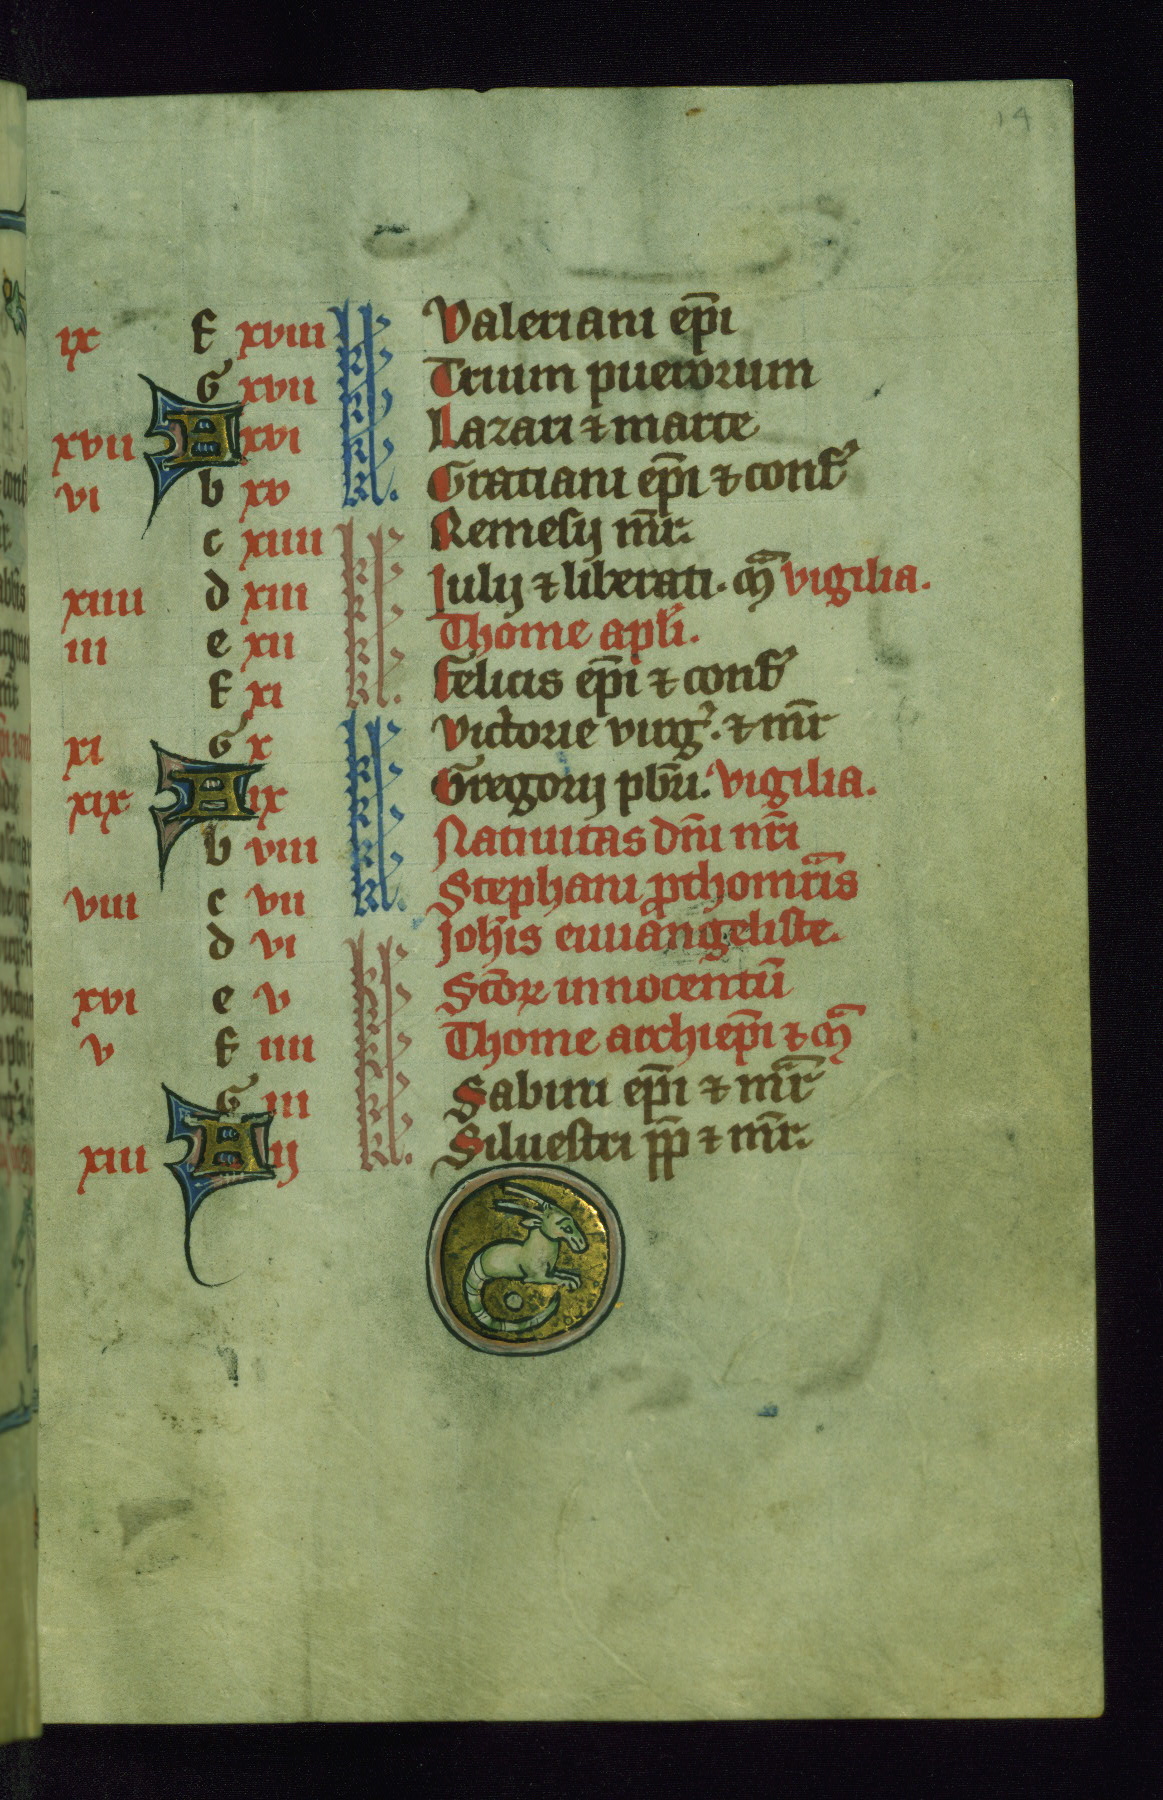 14
ix f xviii kl. Valeriani ep̄i
G xvii kl. Trium puerorum
xvii A xvi kl. Lazari ⁊ marte
vi b xv kl. Gratiani ep̄i ⁊ conf̄
c xiiii kl. Remesij m̄r.
xiiii d xiii kl. Julij ⁊ liberati. m̄ vigilia.
iii e xii kl. Thome apl̄i.
f xi kl. Felicis ep̄i ⁊ conf̄
xi G x kl. Victorie virg̾. ⁊ m̄r
xix A ix kl. Gregorij pb̄ri. vigilia.
b viii kl. Natiuitas dn̄i nr̄i
viii c vii kl. Stephani ꝓthomr̄is
d vi kl. Joh̄is euuangeliste.
xvi e v kl. Sc̄oꝝ innocentū
v f iiii kl. Thome archiep̄i ⁊ m̄
G iii kl. Sabini ep̄i ⁊ mr̄
xiii A ij kl. Siluestri pp̄ ⁊ m̄r.